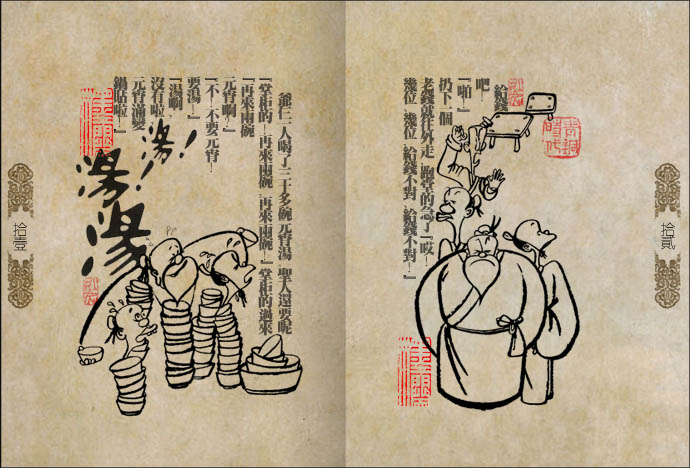 爺仁人喝了三千多碗元宵湯 聖人還要呢
『堂柜的！再來兩碗！再來兩碗！』堂柜的過來
『再來兩碗
元宵啊！』
『不！不要元宵！
要湯！』
『湯啊！
沒有啦！
元宵滿變
鍋貼啦！』
湯！
湯！
湯
拾壹
給錢
吧！
『啪！』
扔下一個
老錢就往外走 跑堂的急了『哎！
幾位！幾位！給錢不對！給錢不對！』
青銅
時代
拾貳